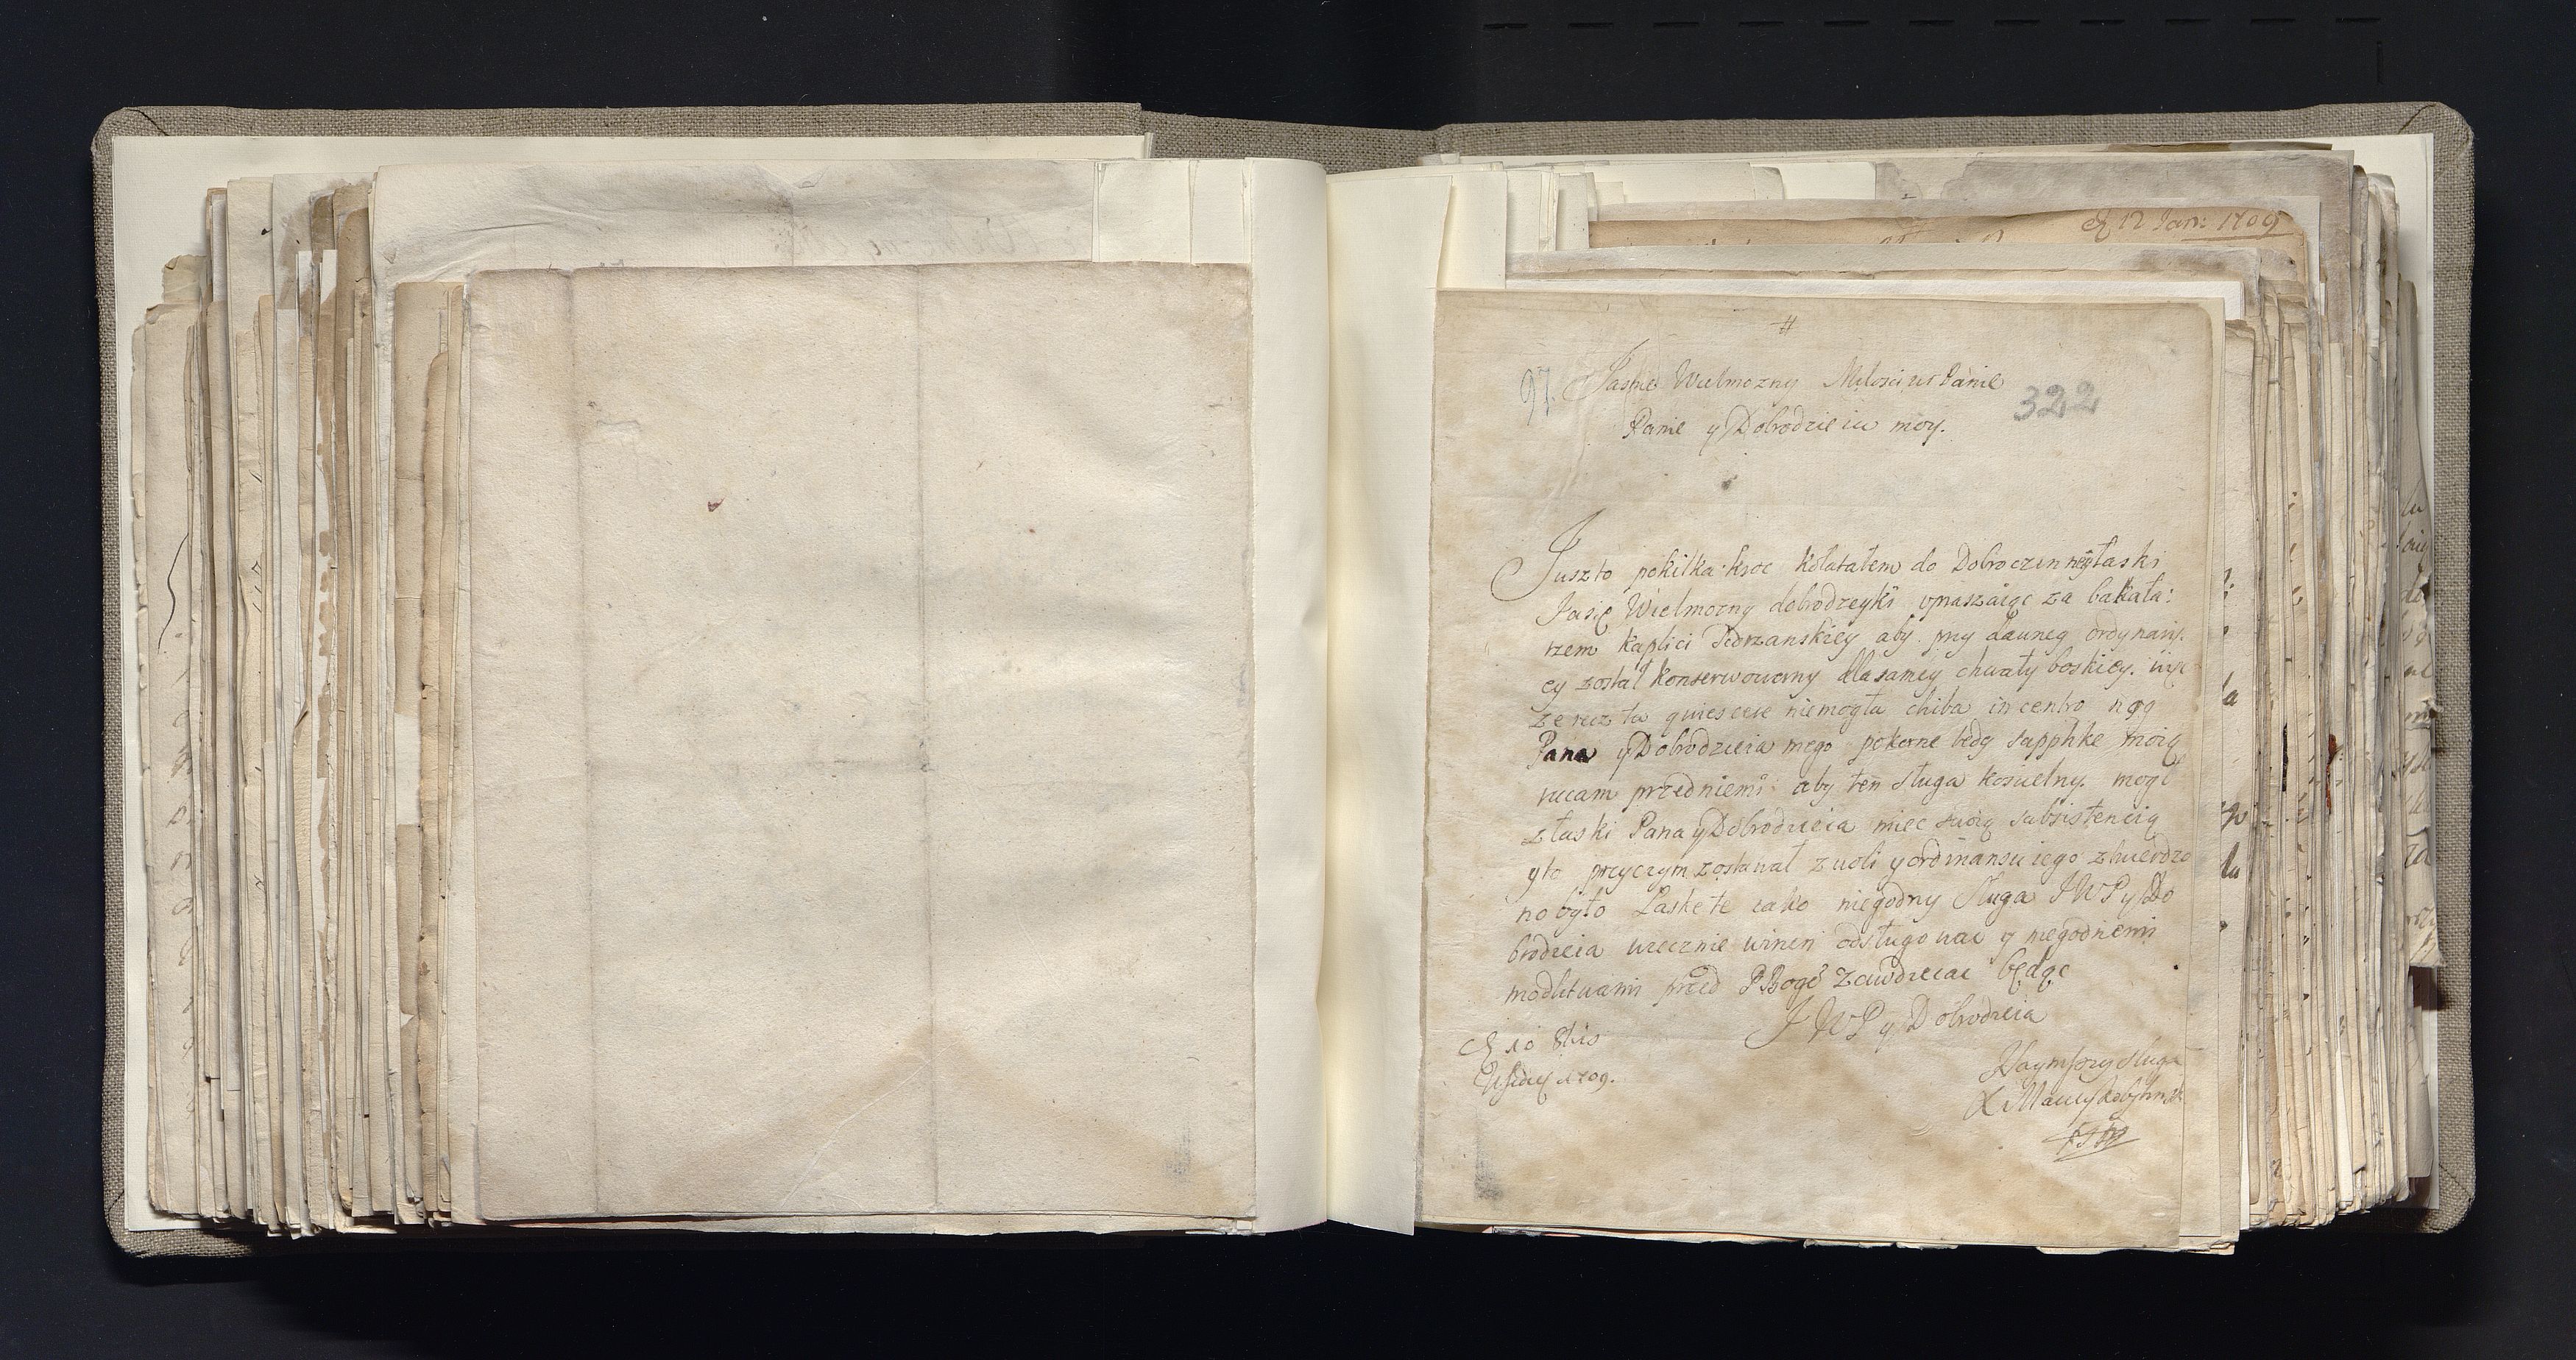 D 12 Jan: 1709
#
97. Jasnie Wielmozny Miłosciwi Panie
322
Panie y Dobrodzieiu moy.
Juszto pokilka kroc kołatałem do Dobroczynney łaski
Jasnie Wielmozny dobrodzeyki vpraszaiąc za bakała:
rzem kaplici aby przy dawney ordynaryi
ey został konserwowany dla samey chwały boskiey.
ze rzecz ta quiescere niemogła chiba in centro nog
Pana y Dobrodzieia mego pokorne będę supplikę moią
rzucam przedniemi aby ten sługa koscielny. mogł
z łaski Pana y Dobrodzieia miec swoię subsistencią
yto przyczym zostawał z woli y ordinansu iego ztwierdzo
no było Łaskę te iako niegodny Sługa JWP y Do
brodzieia wiecznie winien odsługowac y niegodnemi
modlitwami przed P Bogē zawdzieciac będąc
JWP y Dobrodzieia
D 10 8bris
1709.
Naynizszy sługa
X Maciey